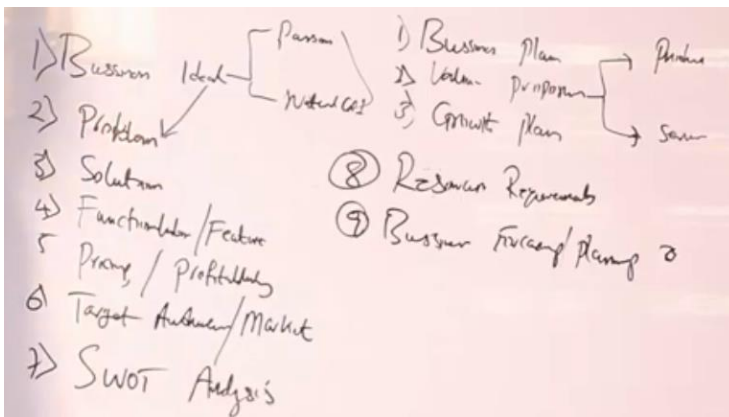 1) Bussiness Idea
Passion
2) Problem
3) Solution
4) Functionalities/Feature
5 Pricing / Profitability
6) Target Audience/Market
7) SWOT Analysis
1) Bussiness Plan
2) Value Proposition
3) Growth Plan
Product
Service
8 Resources Requirements
9 Bussiness Forecasting/Planning